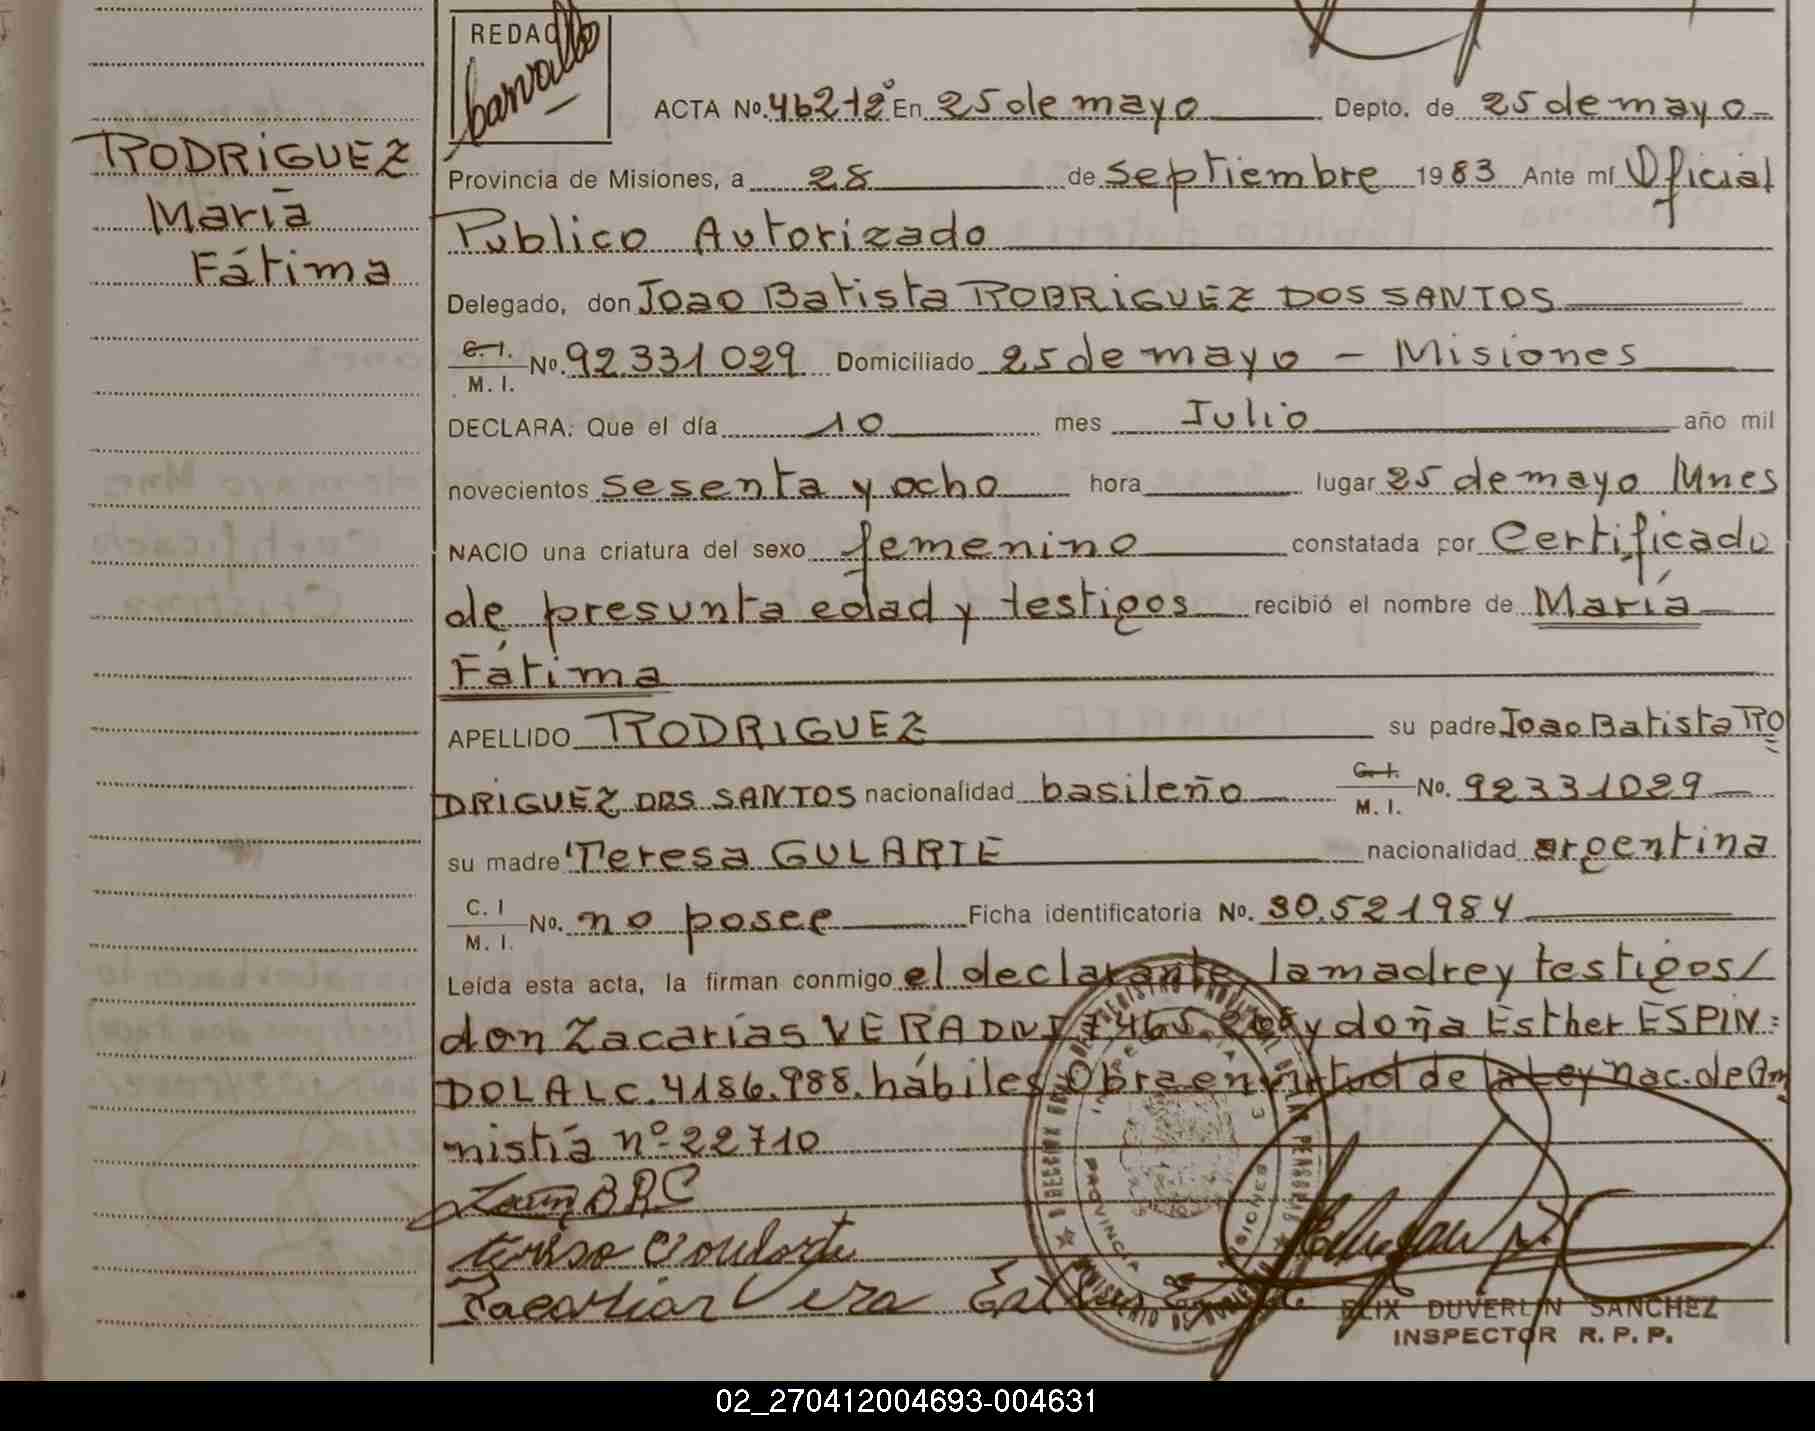 REDAC
Carvallo
ACTA No. 46212° En 25 de mayo Depto. de 25 de mayo
RODRIGUEZ
María
Fátima
Provincia de Misiones, a 28 de septiembre 1983 Ante mí Oficial
Publico Autorizado
Delegado, don Joao Batista RODRIGUEZ DOS SANTOS
C. I. M. I. No. 92.331029 Domiciliado 25 de mayo - Misiones
DECLARA: Que el día 10 mes Julio año mil
novecientos sesenta y ocho hora lugar 25 de mayo Mnes
NACIO una criatura del sexo femenino constatada por Certificado
de presunta edad y testigos recibió el nombre de María
Fátima
APELLIDO RODRIGUEZ su padre Joao Batista RO
DRIGUEZ DOS SANTOS nacionalidad basileño C. I. M. I. No. 92331029
su madre Teresa GULARTE nacionalidad argentina
C. I M. I. No. no posee Ficha identificatoria No. 30.521984
Leída esta acta, la firman conmigo el declarante, la madre y testigos/
don Zacarías VERA DNI 7465.208 y doña Esther ESPIN=
DOLA LC. 4186.988. hábiles. Obra en virtud de la Ley nac. de Am
nistía nº 22710
Teresa Goularte
Zacarias Vera
FELIX DUVERLIN SANCHEZ
INSPECTOR R. P. P.
02_270412004693-004631